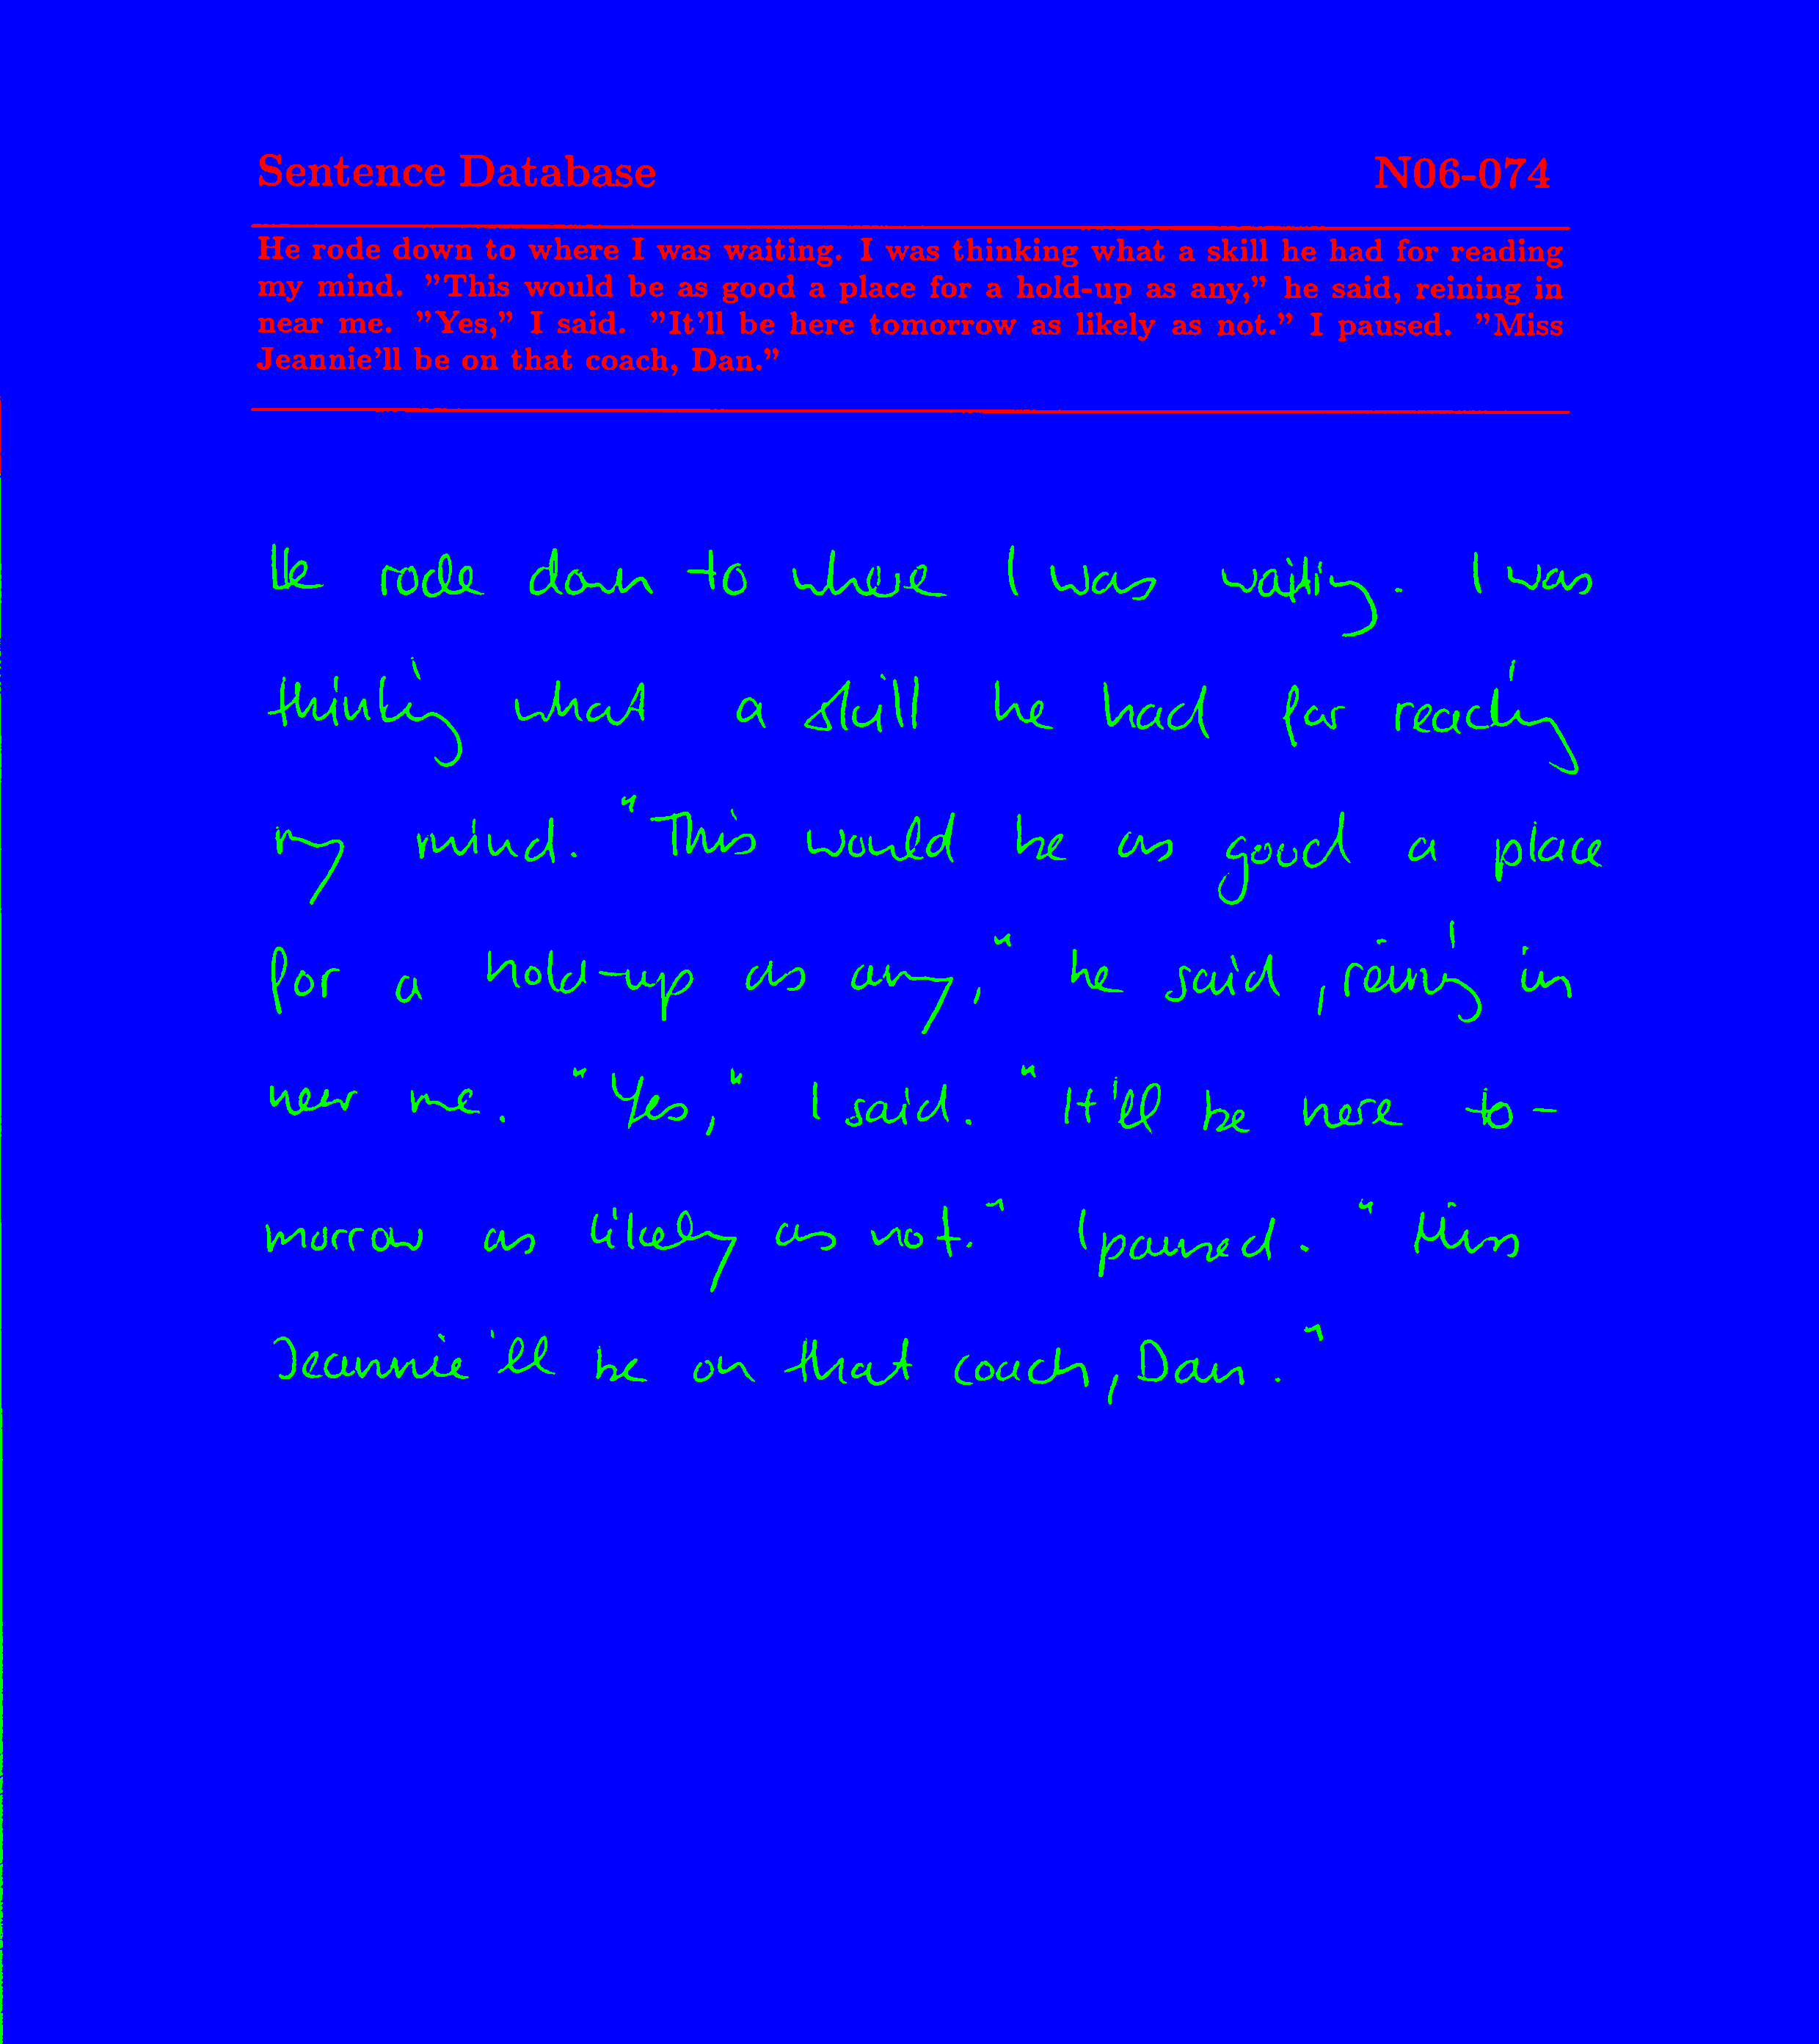 Sentence Database N06-074
He rode down to where I was waiting. I was thinking what a skill he had for reading
my mind. "This would be as good a place for a hold-up as any," he said, reining in
near me. "Yes," I said. "It'll be here tomorrow as likely as not." I paused. "Miss
Jeannie'll be on that coach, Dan."
He rode down to where I was waiting. I was
thinking what a skill he had for reading
my mind. "This would be as good a place
for a hold-up as any," he said, reining in
near me. "Yes," I said. "It'll be here to-
morrow as likely as not." I paused. "Miss
Jeannie'll be on that coach, Dan."